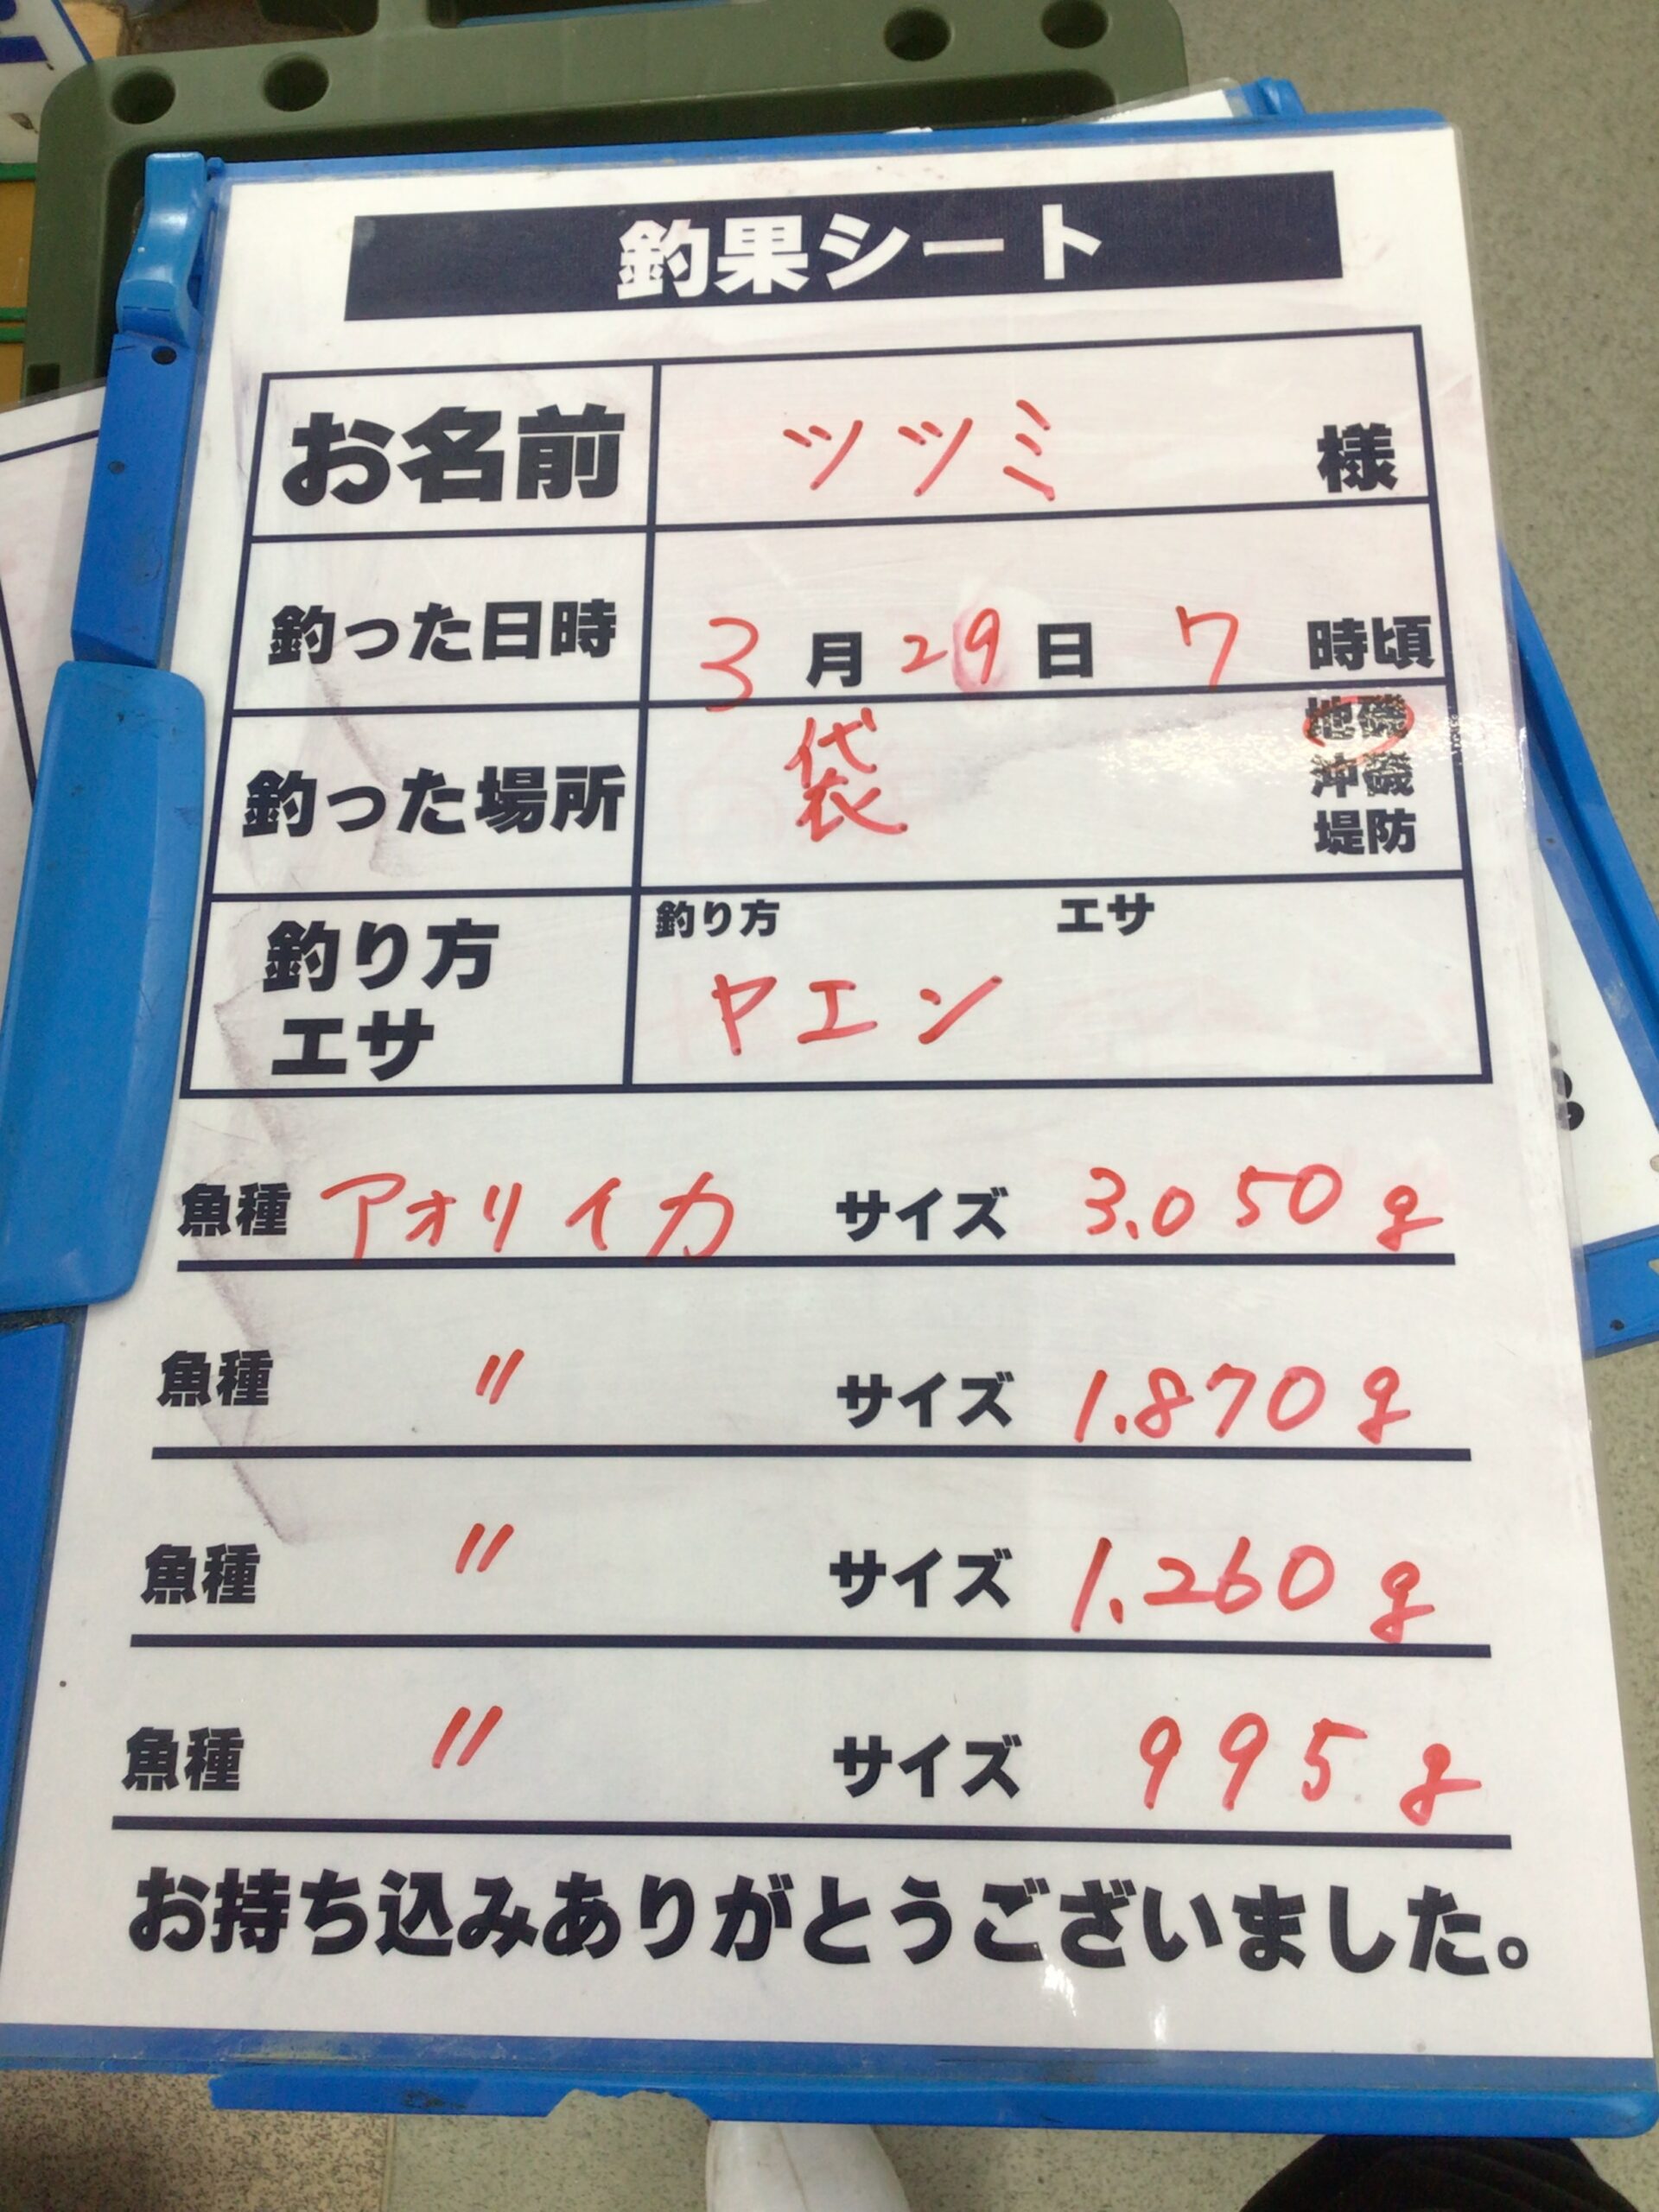 釣果シート
お名前 ツツミ 様
釣った日時 3月29日 7時頃
釣った場所 袋 地磯
沖磯
堤防
釣り方 エサ
釣り方
エサ
ヤエン
魚種 アオリイカ サイズ 3.050g
魚種 〃 サイズ 1.870g
魚種 〃 サイズ 1.260g
魚種 〃 サイズ 995g
お持ち込みありがとうございました。